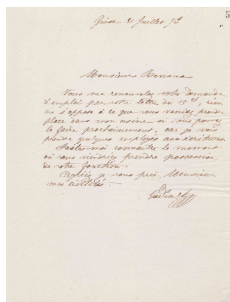 Juillet
Monsieur
Vous me renouvelez votre demande
d'emploi par votre lettre du rien
ne s'oppose à ce que vous veniez prendre
place dans mon si vous pouvez
le faire prochainement, car je vais
prendre quelques employés aux écritures
Faites-moi connaître le moment
où vous viendrez prendre possession
de votre fonction.
Agréez je vous prie, Monsieur
mes civilités.